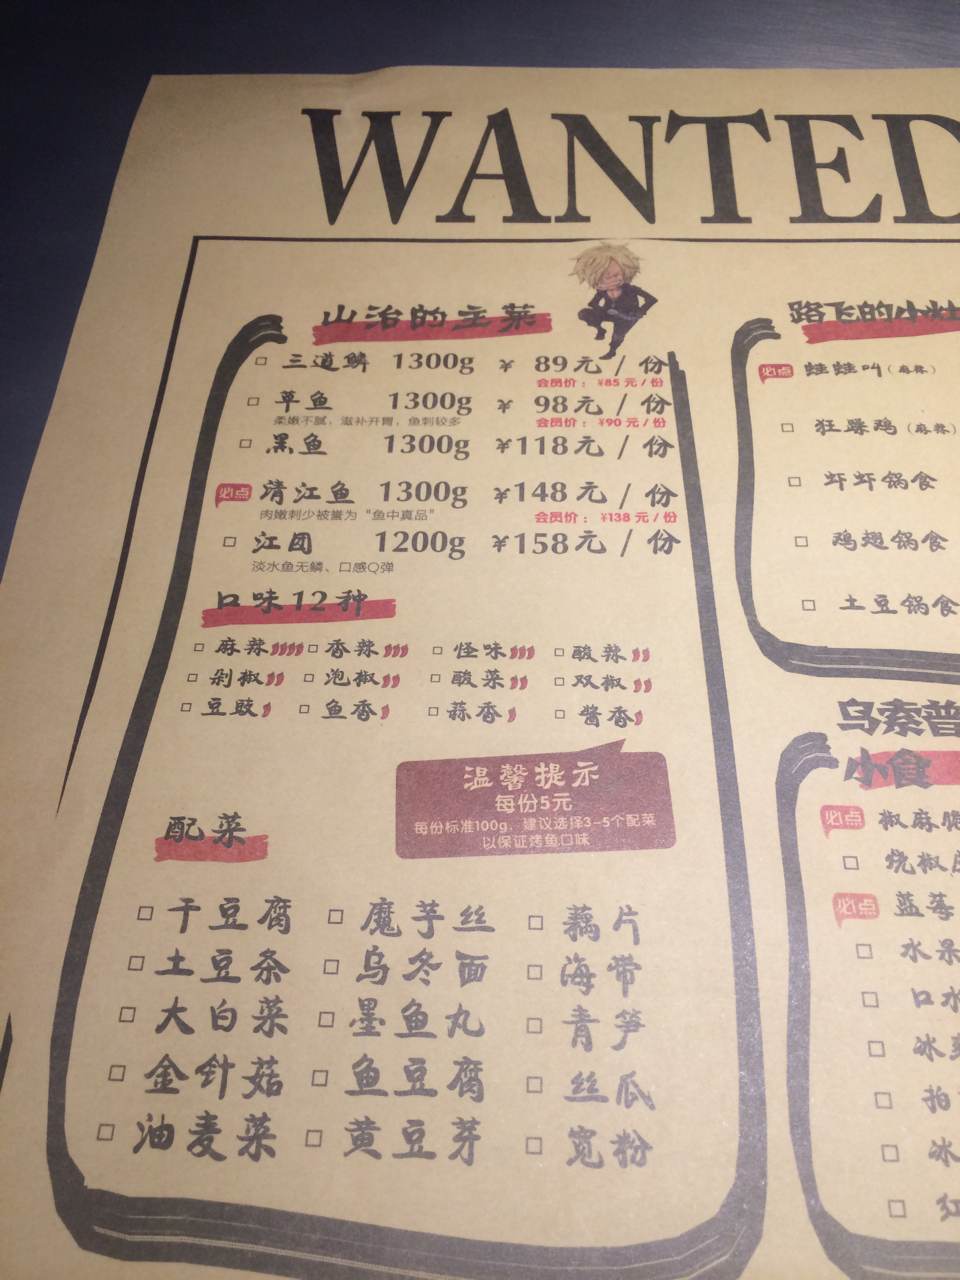 WANTED
山治的主菜
三道鳞 1300g ￥ 89元 / 份
会员价：￥85 元 / 份
草鱼 1300g ￥ 98元 / 份
柔嫩不腻，滋补开胃，鱼刺较多 会员价：￥90 元 / 份
黑鱼 1300g ￥118元 / 份
必点 清江鱼 1300g ￥148元 / 份
肉嫩刺少被誉为“鱼中真品” 会员价：￥138 元 / 份
江团 1200g ￥158元 / 份
淡水鱼无鳞、口感Q弹
口味12种
麻辣 香辣 怪味 酸辣
剁椒 泡椒 酸菜 双椒
豆豉 鱼香 蒜香 酱香
温馨提示
每份5元
每份标准100g，建议选择3-5个配菜
以保证烤鱼口味
配菜
干豆腐 魔芋丝 藕片
土豆条 乌冬面 海带
大白菜 墨鱼丸 青笋
金针菇 鱼豆腐 丝瓜
油麦菜 黄豆芽 宽粉
路飞的小灶
必点 蛙蛙叫（麻辣）
狂躁鸡（麻辣）
虾虾锅食
鸡翅锅食
土豆锅食
乌索普
小食
必点 椒麻
烧椒
必点 蓝莓
水果
口水
冰
拍
冰
红